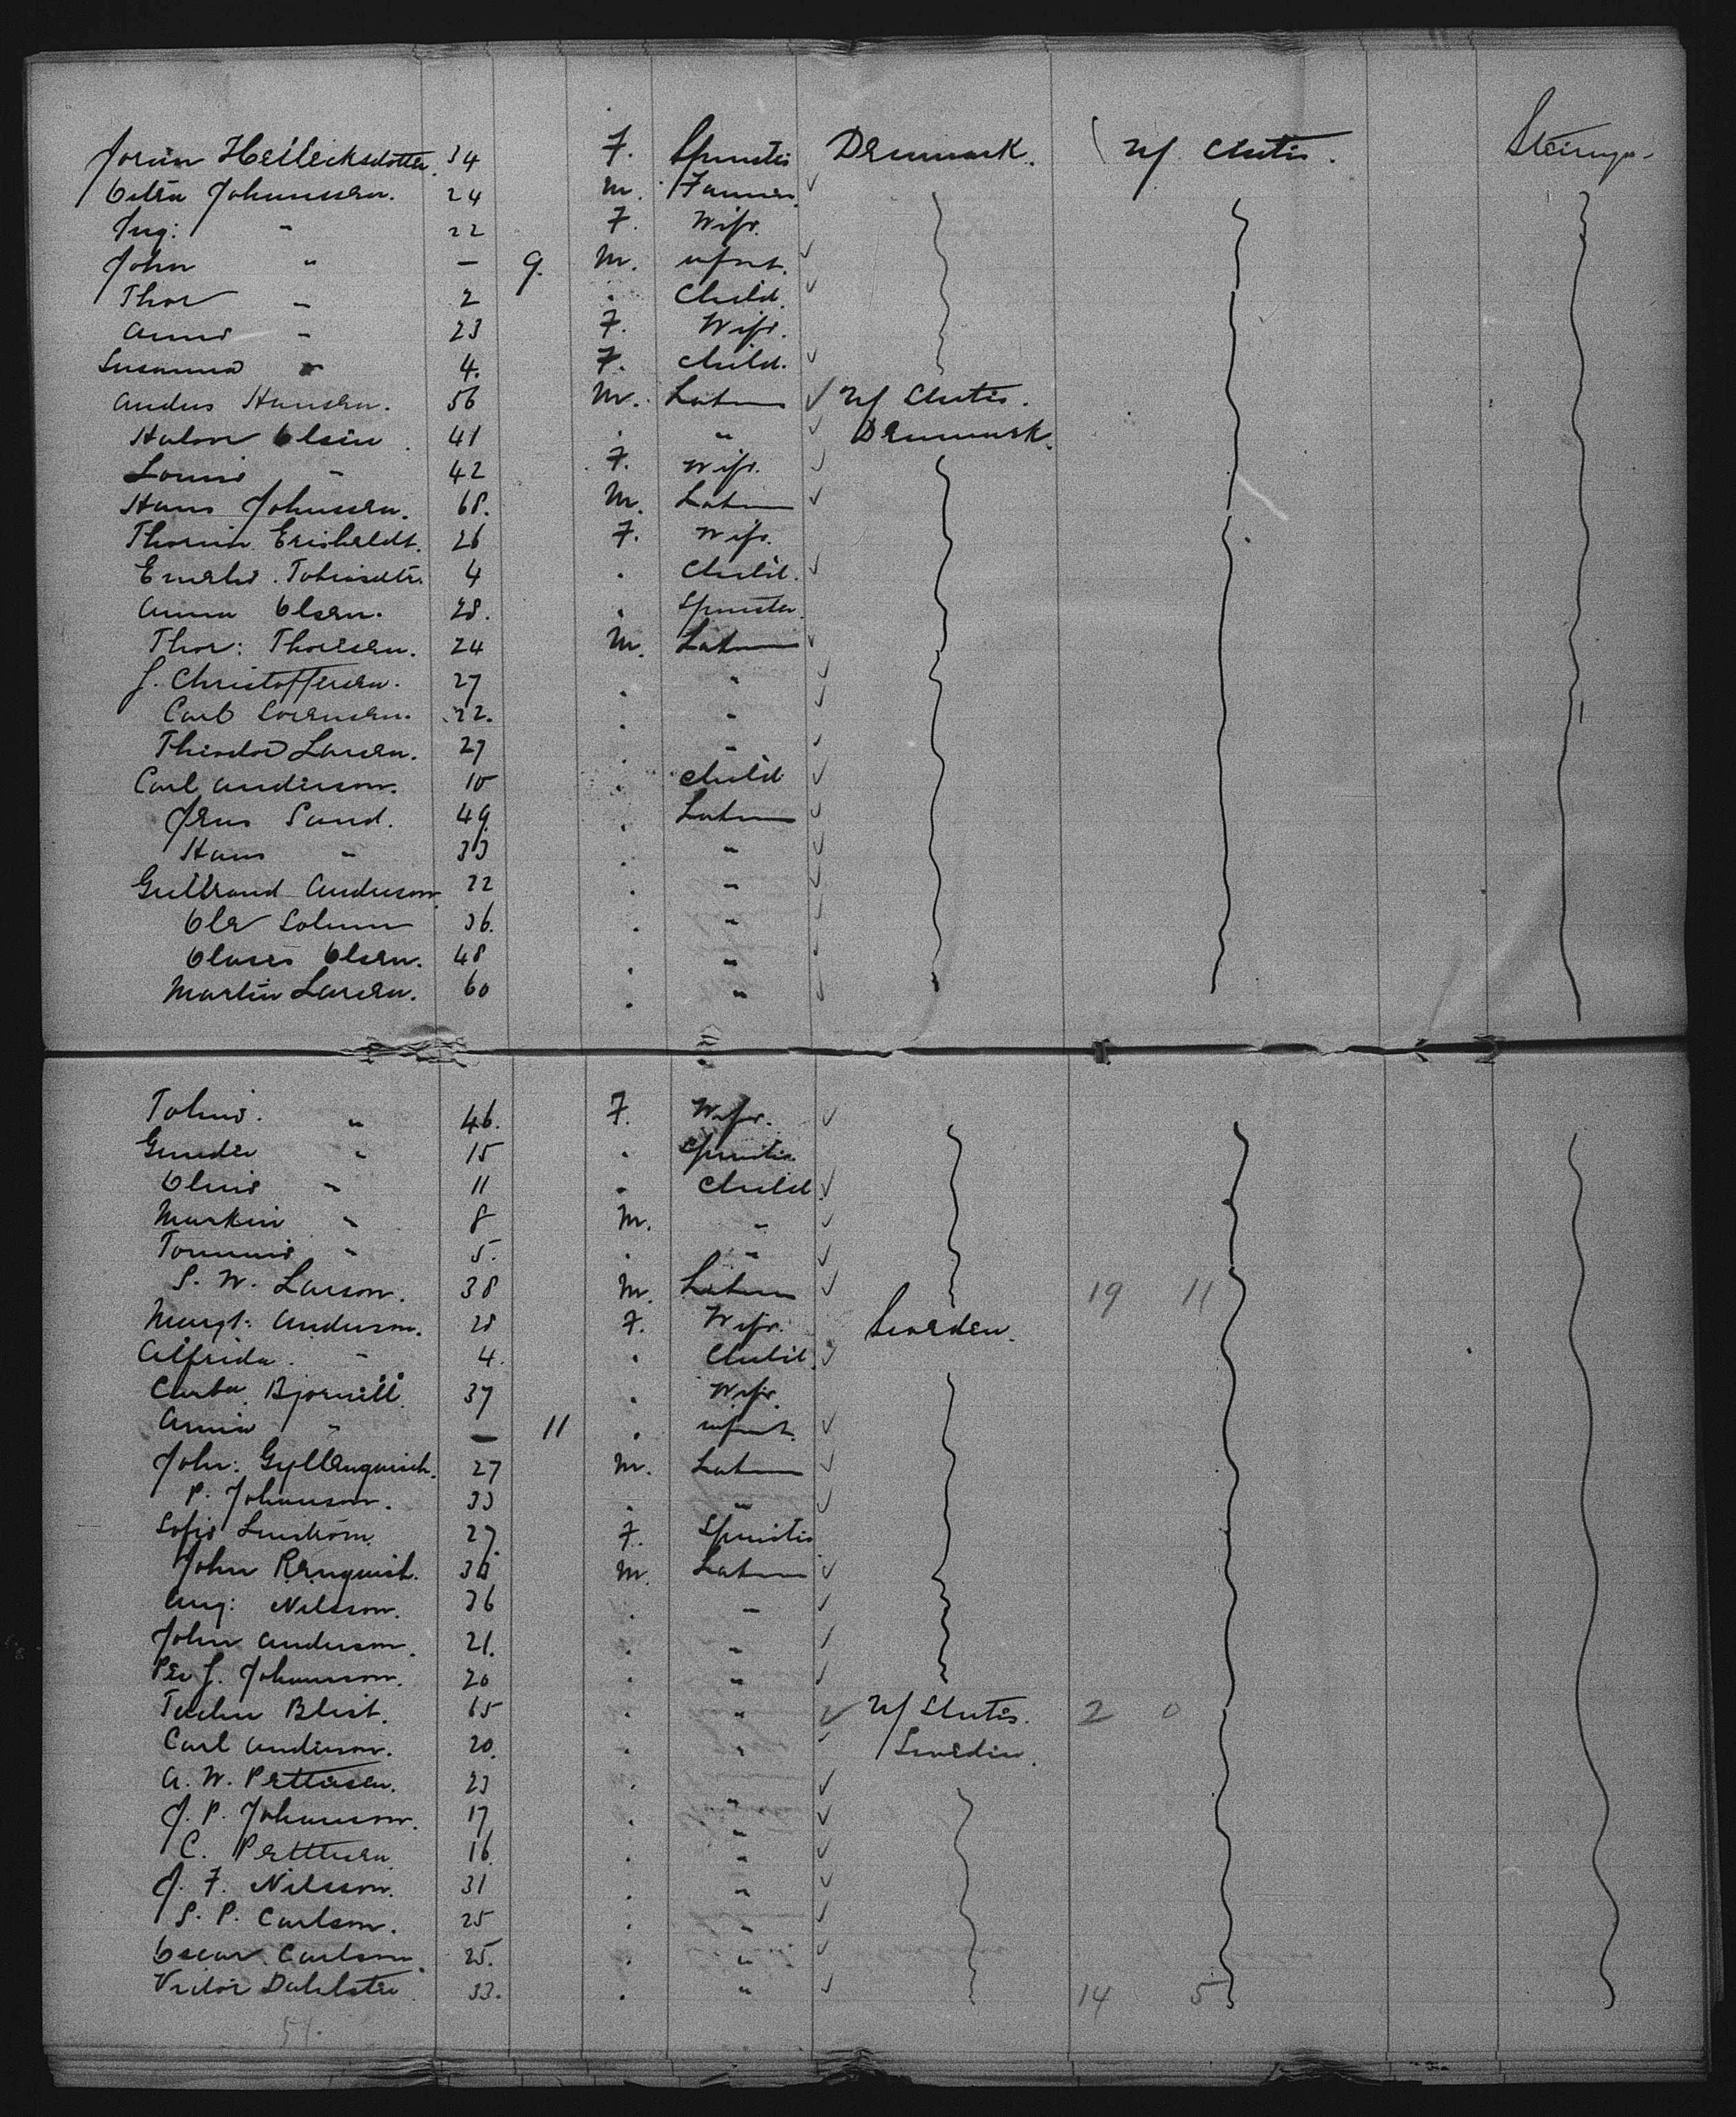 Jorun Hellecksdotter. 34 F. Spinster Denmark. U/ States. Steerage
Ostra Johannssen. 24 M. Farmer
Ing: " 22 F. Wife.
John " — 9. M. infant.
Thor " 2 . Child.
Anna " 23 F. Wife.
Susanna " 4. F. Child.
Andus Hansen. 56 M. Labourer U/ States.
Halvor Olsen 41 . " Denmark.
Louisa " 42 F. Wife.
Hans Johnsen. 68. M. Labourer
Thorina 26 F. Wife.
4 . Child.
Anna Olsen. 28. . Spinster
Thor: Thorsen. 24 M. Labourer
J. Christoffersen. 27 . "
Carl Sorensen. 22. . "
Theodor Larsen. 27 . "
Carl Anderson. 10 . Child
Jens Sand. 49. . Labourer
Hans " 33 . "
Gulbrand Anderson 22 . "
Ole Solum 36. . "
Olaves Olsen. 48 . "
Martin Larsen. 60 . "
" 46. F. Wife.
" 15 . Spinster
Olina " 11 . Child
Martin " 8 M. "
" 5. . "
S. W. Larson. 38 M. Labourer 19 11
Margt: Anderson. 28 F. Wife. Sweden.
Alfrida. " 4. . Child.
Bjornill. 37 . Wife.
Annia " — 11 . infant.
John: Gyllenquist. 27 M. Labourer
P. Johanson. 33 . "
Sofia Linstrom. 27. F. Spinster
John Renquist. M. Labourer
Aug: Nilsson. 36 . "
John Anderson. 21. . "
Per J. Johanson. 20 . "
Blist. 65 . " U/ States. 2 0
Carl Anderson. 20. . " Sweden.
A. W. Pettersen. 23 . "
J. P. Johanson. 17 . "
C. Pettersen 16. . "
J. F. Nilsson. 31 . "
S. P. Carlson. 25 . "
Oscar Carlson. 25. . "
Victor 33. . " 14 5